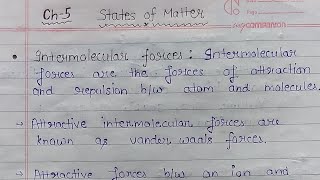 Ch-5 States of Matter
Intermolecular forces: Intermolecular
forces are the forces of attraction
and repulsion b/w atom and molecules.
→ Attractive intermolecular forces are
known as vander waals forces.
→ Attractive forces b/w an ion and